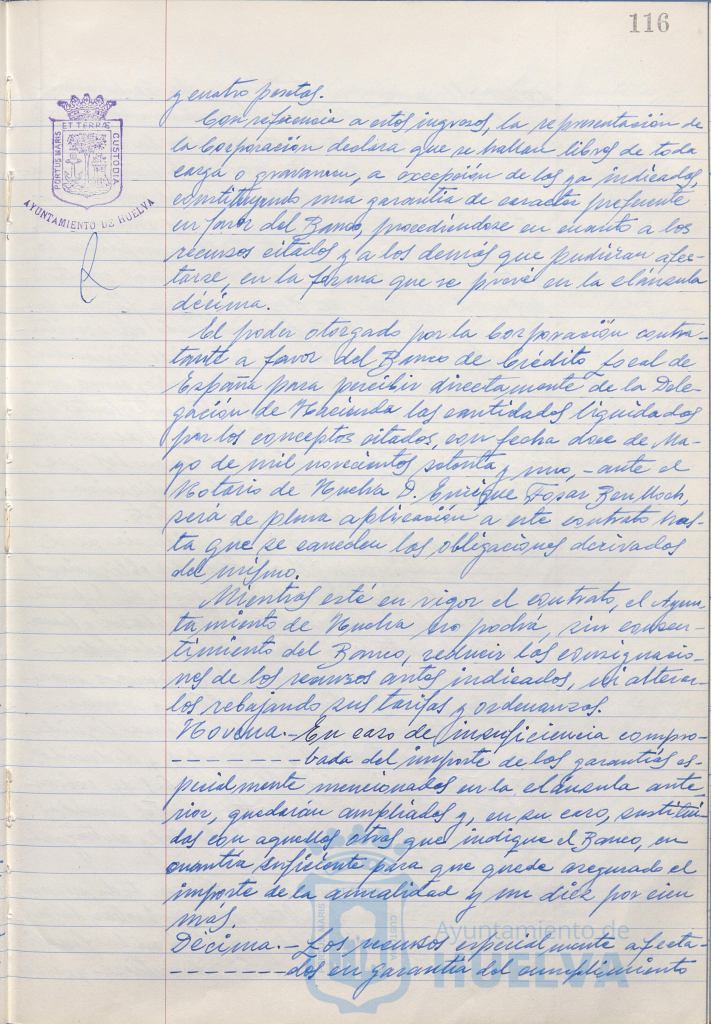 116
PORTUS MARIS ET TERRÆ CUSTODIA
AYUNTAMIENTO DE HUELVA
y cuatro pesetas.
Con referencia a estos ingresos, la representación de
la Corporación declara que se hallan libres de toda
carga o gravamen, a excepción de los ya indicados,
constituyendo una garantía de caracter preferente
en favor del Banco, procediéndose en cuanto a los
recursos citados y a los demás que pudieran afec-
tarse, en la forma que se prevé en la cláusula
décima.
El poder otorgado por la Corporación contra-
tante a favor del Banco de Crédito Local de
España para percibir directamente de la Dele-
gación de Hacienda las cantidades liquidadas
por los conceptos citados, con fecha doce de Ma-
yo de mil novecientos setenta y uno, - ante el
Notario de Huelva D. Enrique Fosar Benlloch,
será de plena aplicación a este contrato has-
ta que se cancelen las obligaciones derivadas
del mismo.
Mientras esté en vigor el contrato, el Ayun-
tamiento de Huelva no podrá, sin consen-
timiento del Banco, reducir las consignacio-
nes de los recursos antes indicados, ni alterar-
los rebajando sus tarifas y ordenanzas.
Novena.- En caso de insuficiencia compro-
- - - - - - - bada del importe de las garantías es-
pecialmente mencionadas en la cláusula ante-
rior, quedarán ampliadas y, en su caso, sustitui-
das con aquellos otros que indique el Banco, en
cuantía suficiente para que quede asegurado el
importe de la anualidad y un diez por cien
mas.
Décima.- Los recursos especialmente afecta-
- - - - - - - dos en garantía del cumplimiento
Ayuntamiento de
HUELVA